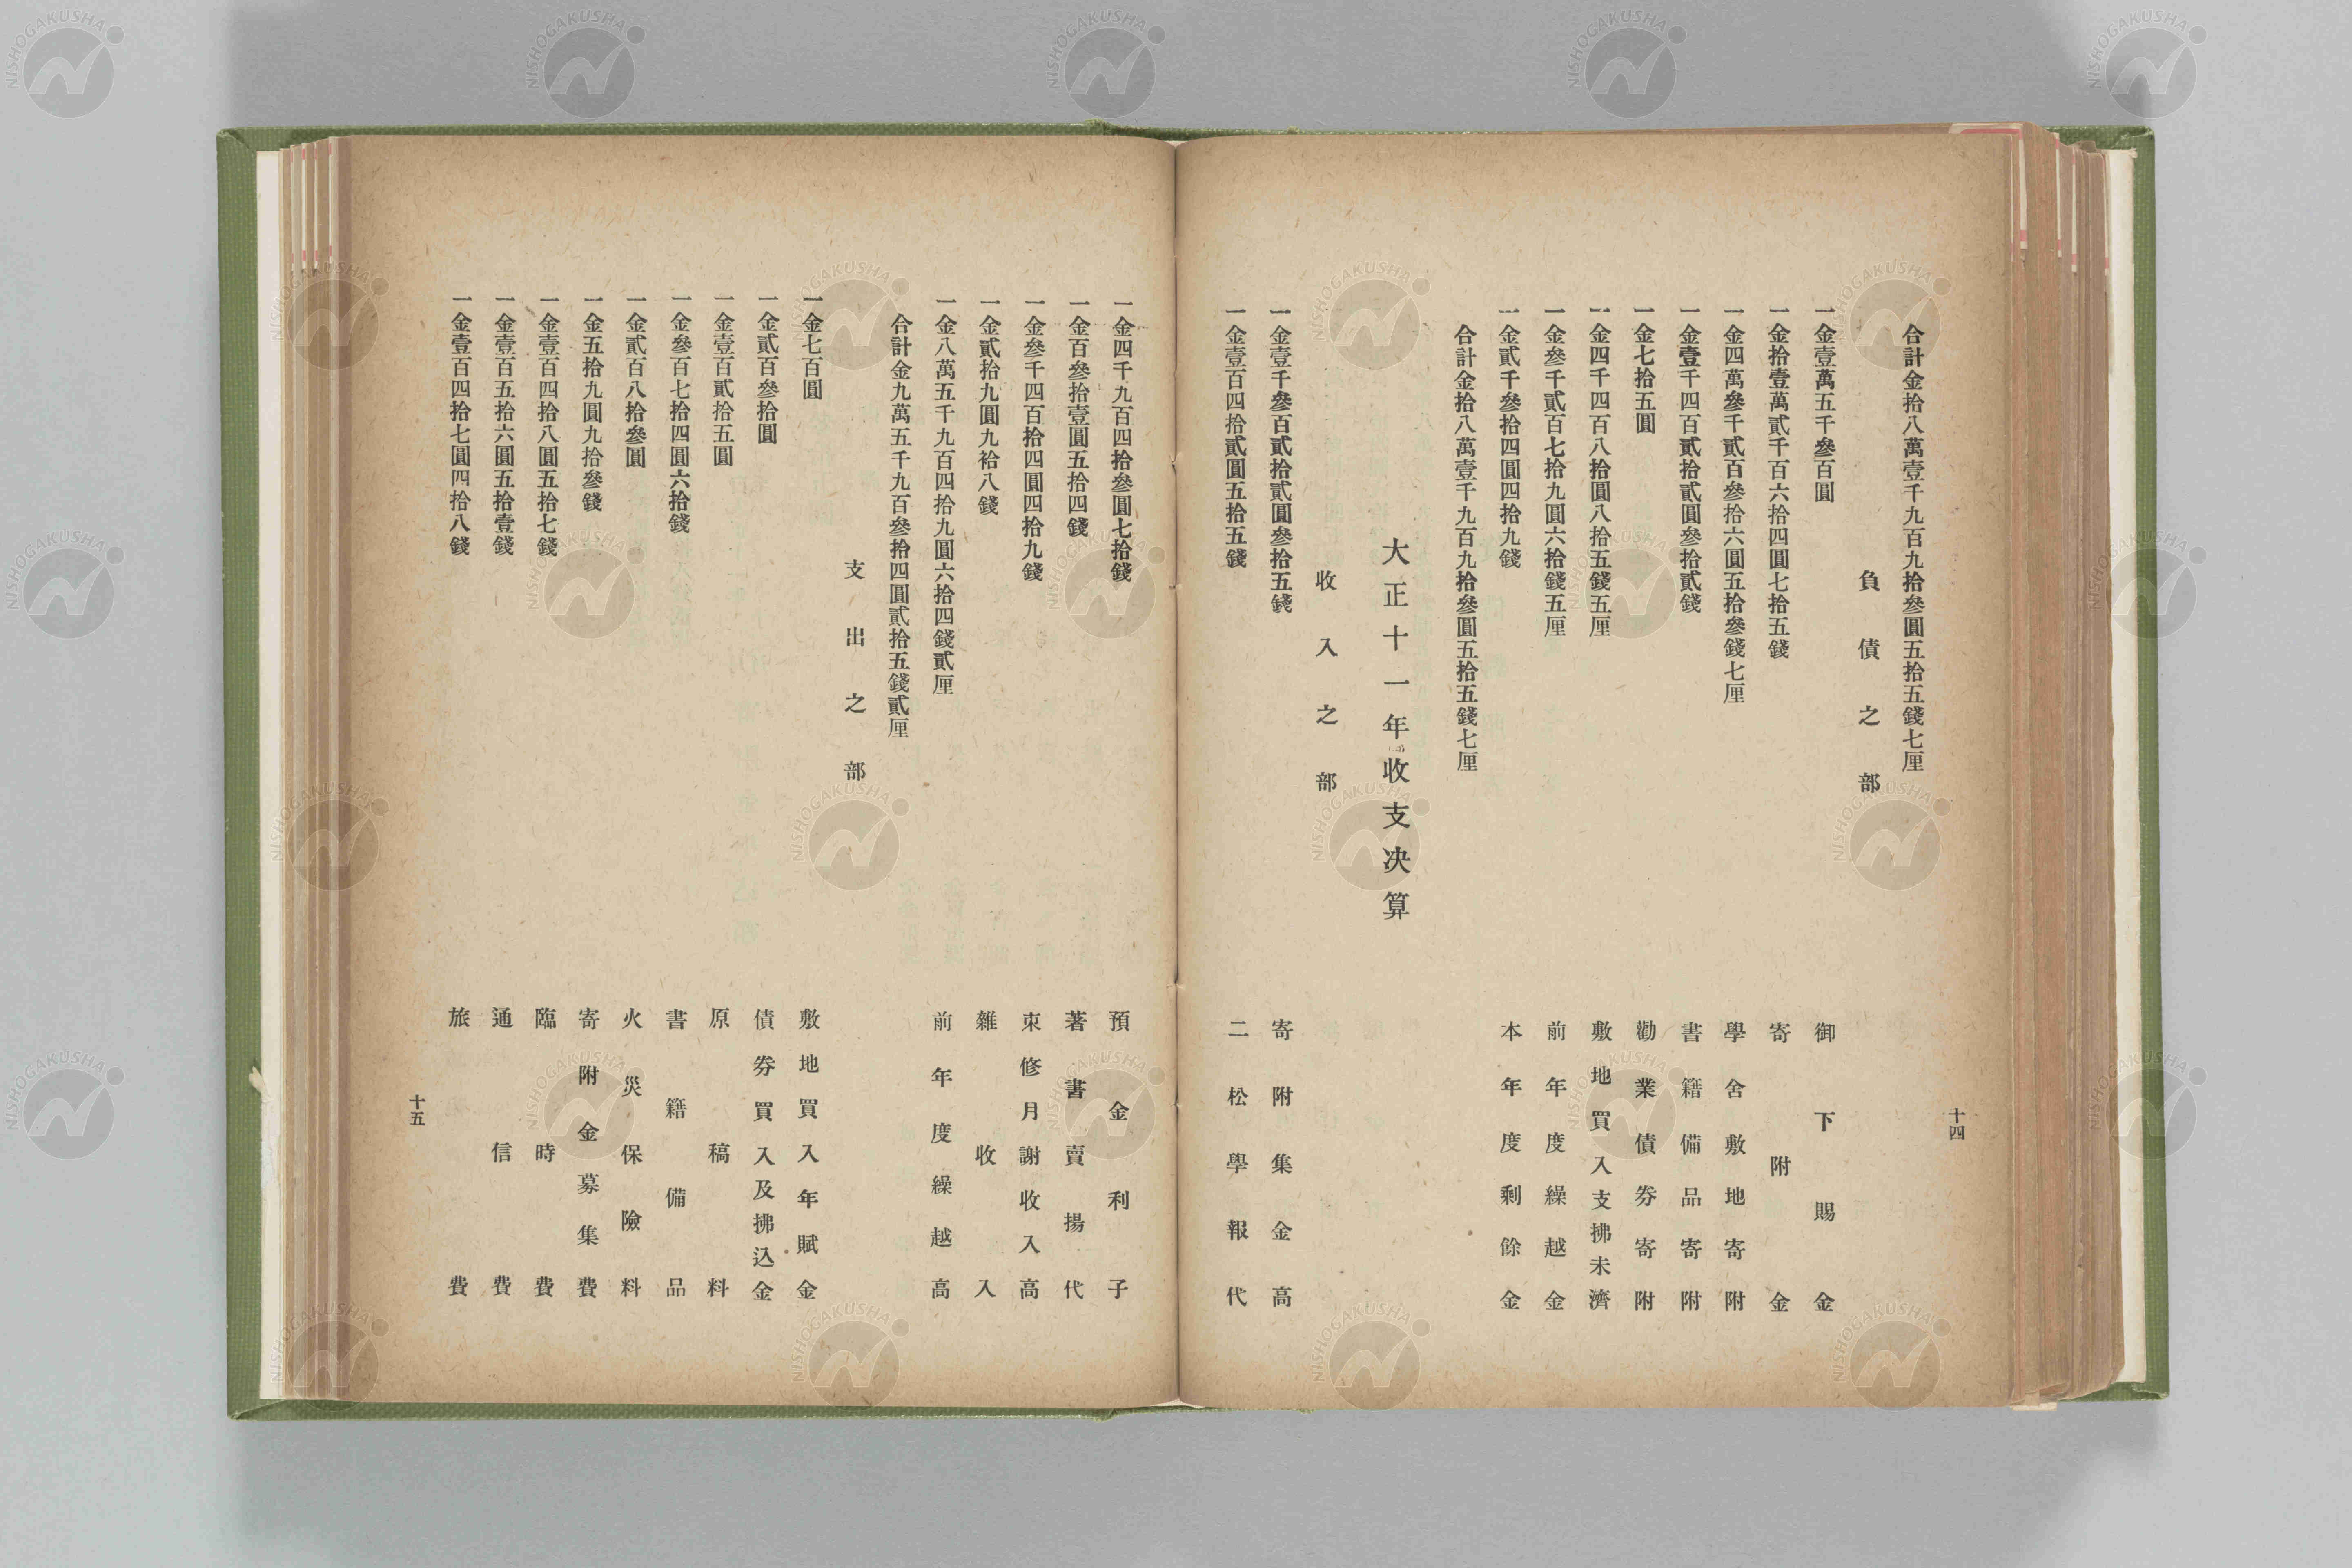 十四
合計金拾八萬壹千九百九拾參圓五拾五錢七厘
負債之部
一金壹萬五千參百圓 御下賜金
一金拾壹萬貳千百六拾四圓七拾五錢 寄附金
一金四萬參千貳百參拾六圓五拾參錢七厘 學舍敷地寄附
一金壹千四百貳拾貳圓參拾貳錢 書籍備品寄附
一金七拾五圓 勸業債券寄附
一金四千四百八拾圓八拾五錢五厘 敷地買入支拂未濟
一金參千貳百七拾九圓六拾錢五厘 前年度繰越金
一金貳千參拾四圓四拾九錢 本年度剩餘金
合計金拾八萬壹千九百九拾參圓五拾五錢七厘
大正十一年收支決算
收入之部
一金壹千參百貳拾貳圓參拾五錢 寄附集金高
一金壹百四拾貳圓五拾五錢 二松學報代
一金四千九百四拾參圓七拾錢 預金利子
一金百參拾壹圓五拾四錢 著書賣揚代
一金參千四百拾四圓四拾九錢 束修月謝收入高
一金貳拾九圓九拾八錢 雜收入
一金八萬五千九百四拾九圓六拾四錢貳厘 前年度繰越高
合計金九萬五千九百參拾四圓貳拾五錢貳厘
支出之部
一金七百圓 敷地買入年賦金
一金貳百參拾圓 債券買入及拂込金
一金壹百貳拾五圓 原稿料
一金參百七拾四圓六拾錢 書籍備品
一金貳百八拾參圓 火災保險料
一金五拾九圓九拾參錢 寄附金募集費
一金壹百四拾八圓五拾七錢 臨時費
一金壹百五拾六圓五拾壹錢 通信費
一金壹百四拾七圓四拾八錢 旅費
十五
NISHOGAKUSHA